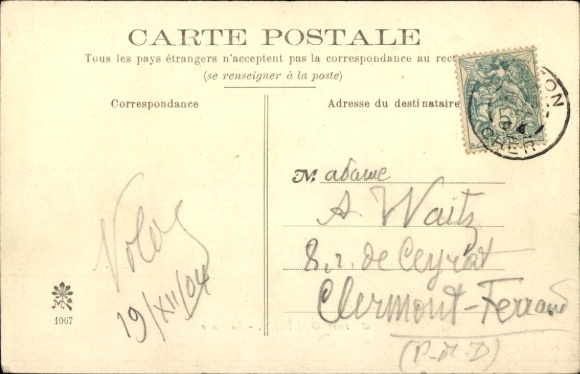 CARTE POSTALE
Tous les pays étrangers n'acceptent pas la correspondance au rec
(se renseigner à la poste)
Correspondance
Adresse du destinataire
Madame
A. Waitz
8, r. de Ceyrat
Clermont-Ferrand
(P-d-D)
19/XII/04
1067
5c
ON
CHER